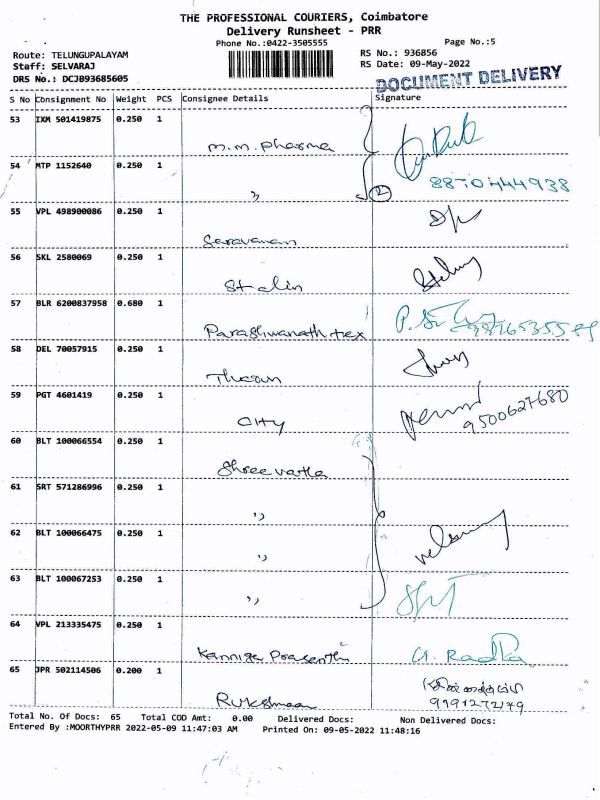 THE PROFESSIONAL COURIERS, Coimbatore
Delivery Runsheet - PRR
Phone No.:0422-3505555
Page No.:5
Route: TELUNGUPALAYAM
RS No.: 936856
Staff: SELVARAJ
RS Date: 09-May-2022
DRS No.: DCJB93685605
DOCUMENT DELIVERY
S No Consignment No Weight PCS Consignee Details Signature
53 IXM 501419875 0.250 1
m.m. pharma
54 MTP 1152640 0.250 1
" 2 8870444938
55 VPL 498900086 0.250 1
Saravanan
56 SKL 2580069 0.250 1
Stalin
57 BLR 6200837958 0.680 1
Parashwanath tex
58 DEL 70057915 0.250 1
59 PGT 4601419 0.250 1
City 9500627680
60 BLT 100066554 0.250 1
61 SRT 571286996 0.250 1
"
62 BLT 100066475 0.250 1
"
63 BLT 100067253 0.250 1
"
64 VPL 213335475 0.250 1
65 JPR 502114506 0.200 1
Total No. Of Docs: 65 Total COD Amt: 0.00 Delivered Docs: Non Delivered Docs:
Entered By :MOORTHYPRR 2022-05-09 11:47:03 AM Printed On: 09-05-2022 11:48:16